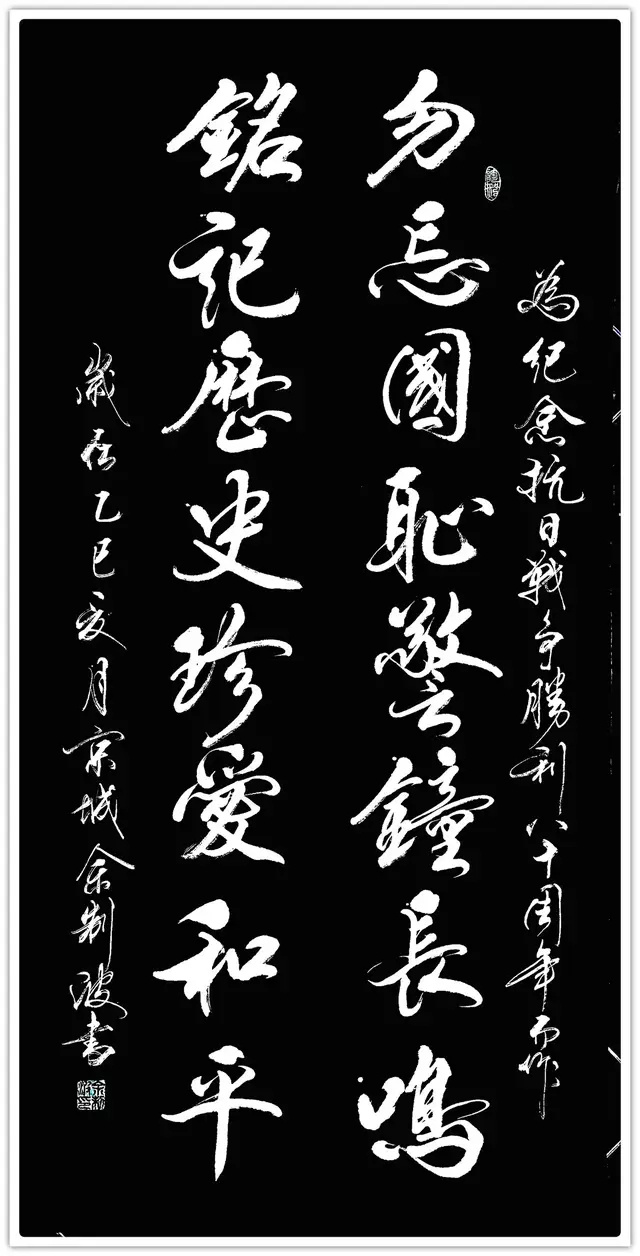 為紀念抗日戰爭勝利八十周年而作
勿忘國恥警鐘長鳴
銘記歷史珍愛和平
歲在乙巳夏月京城余制波書